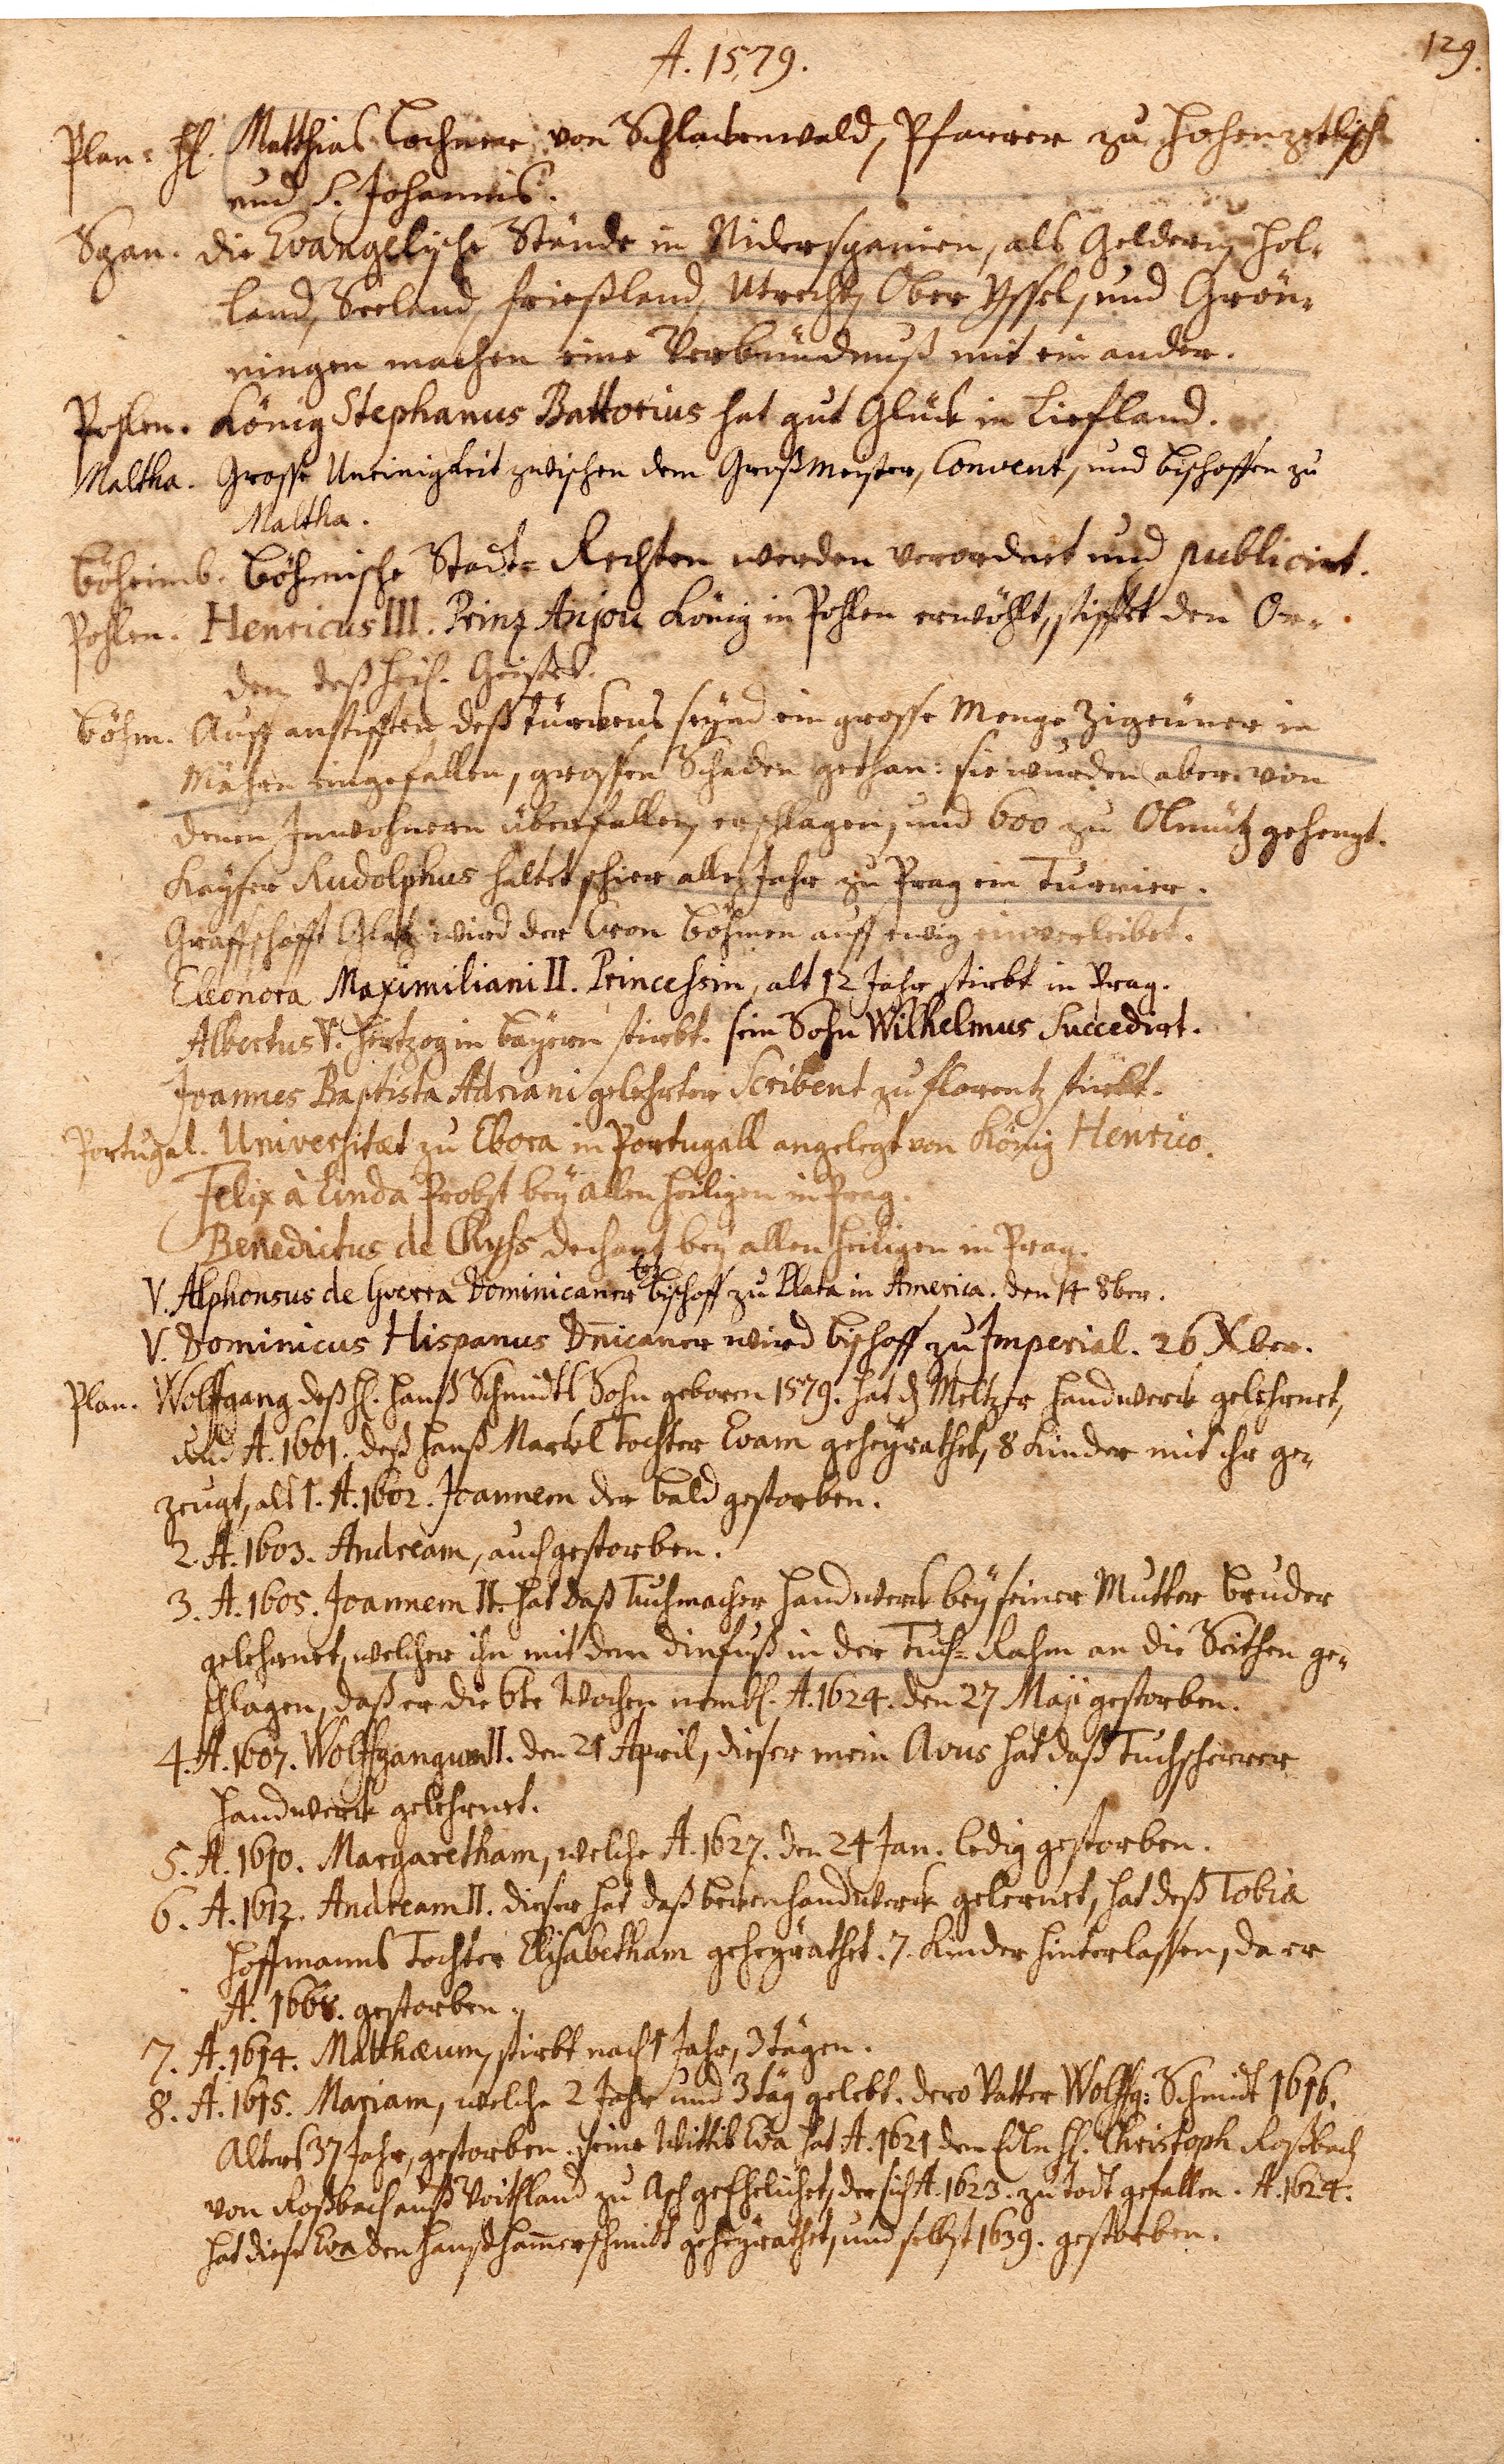 A. 1579.
129.
Plan. H. Matthias Lochner von Schlackenwald, Pfarrer zu Hohenzetlisch
und S. Johannis.
Span. die Evangelische Stände in Niderspanien, als Geldern, Hol-
land, Seeland, Frießland, Utrecht, Ober Yssel, und Grön-
ningen machen eine Verbündnuß mit ein ander.
Pohlen. König Stephanus Battorius hat gut Glück in Liefland.
Maltha. Grosse Uneinigkeit zwischen dem Großmeister, Convent, und Bischoffen zu
Maltha.
Böheimb. Böhmische Stadt-Rechten werden verordnet und publicirt.
Pohlen. Henricus III. Prinz Anjou König in Pohlen erwöhlt, stifftet den Or-
den deß heil. Geistes.
Böhm. Auff anstifften deß Türckens seynd ein grosse Menge Zigeuner in
Mähren eingefallen, grossen Schaden gethan: sie wurden aber von
denen Inwohnern überfallen, erschlagen, und 600 zu Olmütz gehengt.
Kayser Rudolphus haltet schier alle Jahr zu Prag ein Turnier.
Graffschafft Glatz wird der Cron Böhmen auff ewig einverleibet.
Eleonora Maximiliani II. Princessin, alt 12 Jahr, stirbt in Prag.
Albertus V. Hertzog in Bayern stirbt. sein Sohn Wilhelmus Succedirt.
Joannes Baptista Adriani gelehrter Scribent zu Florentz stirbt.
Portugal. Universitæt zu Ebora in Portugall angelegt von König Henrico.
Felix à Linda Probst bey Allen Heiligen in Prag.
Benedictus de Dechant bey allen Heiligen in Prag.
V. Alphonsus de Guerra Dominicaner Ertz Bischoff zu Plata in America. den 14 8ber.
V. Dominicus Hispanus Dnicaner wird Bischoff zu Imperial. 26 Xber.
Plan. Wolffgang deß H. Hanß Schmidtl Sohn geboren 1579. hat dz Meltzer Handwerck gelehrnet,
und A. 1601. deß Hanß Markl Tochter Evam geheyrathet, 8 Kinder mit ihr ge-
zeugt, als 1. A. 1602. Joannem der bald gestorben.
2. A. 1603. Andream, auch gestorben.
3. A. 1605. Joannem II. hat daß Tuchmacher Handwerck bey seiner Mutter Bruder
gelehrnet, welcher ihn mit dem in der Tuch-Rahm an die Seithen ge-
schlagen, daß er die 6te Wochen neml. A. 1624. den 27 Maji gestorben.
4. A. 1607. Wolffgangum II. den 21 April, dieser mein Avus hat daß Tuchscherer
Handwerck gelehrnet.
5. A. 1610. Margaretham, welche A. 1627. den 24 Jan. ledig gestorben.
6. A. 1612. Andream II. dieser hat daß Handwerck gelernet, hat deß Tobia
Hoffmanns Tochter Elisabetham geheyrathet. 7. Kinder hinterlassen, da er
A. 1668. gestorben.
7. A. 1614. Matthæum, stirbt nach 1 Jahr, 3 tägen.
8. A. 1615. Mariam, welche 2 Jahr und 3 täg gelebt. dero Vatter Wolffg: Schmidt 1616.
Alters 37 Jahr, gestorben. seine Wittib Eva hat A. 1621 den Edln H. Christoph Roßbach
von Roßbach auß Voithland zu Asch geehelichet, der sich A. 1623. zu todt gefallen. A. 1624.
hat diese Eva den Hanß Hamerschmidt geheyrathet, und selbst 1639. gestorben.